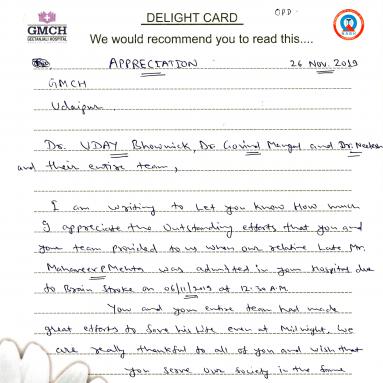 DELIGHT CARD
OPD
GMCH
GEETANJALI HOSPITAL
We would recommend you to read this....
APPRECIATION 26 NOV. 2019
GMCH
Udaipur
Dr. UDAY Bhowmick, Dr. Govind Mangal and Dr. Neelesh
and their entire team,
I am writing to Let you know How much
I appreciate the Outstanding efforts that you and
your team provided to us when our relative Late Mr.
Mahaveer P Mehta was admitted in your hospital due
to Brain Stroke on 06/11/2019 at 12:30 A.M.
You and you entire team had made
great efforts to Save his Life even at Midnight. We
are really thankful to all of you and wish that
you serve our society in the same